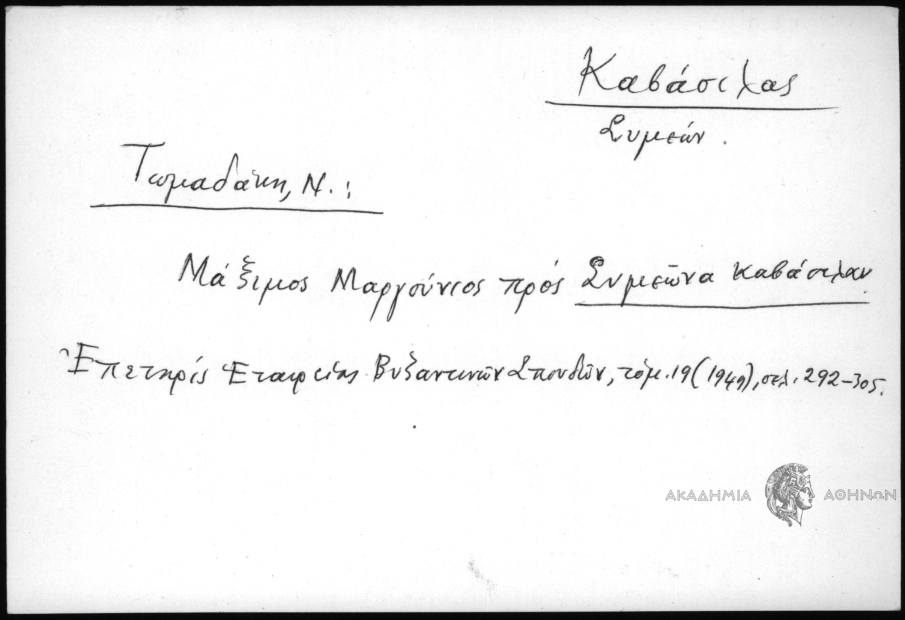 Καβάσιλας
Συμεών.
Τωμαδάκη, Ν.:
Μάξιμος Μαργούνιος πρός Συμεῶνα Καβάσιλαν.
Ἐπετηρίς Ἑταιρείας Βυζαντινῶν Σπουδῶν, τόμ. 19 (1949), σελ. 292-305.
ΑΚΑΔΗΜΙΑ ΑΘΗΝΩΝ